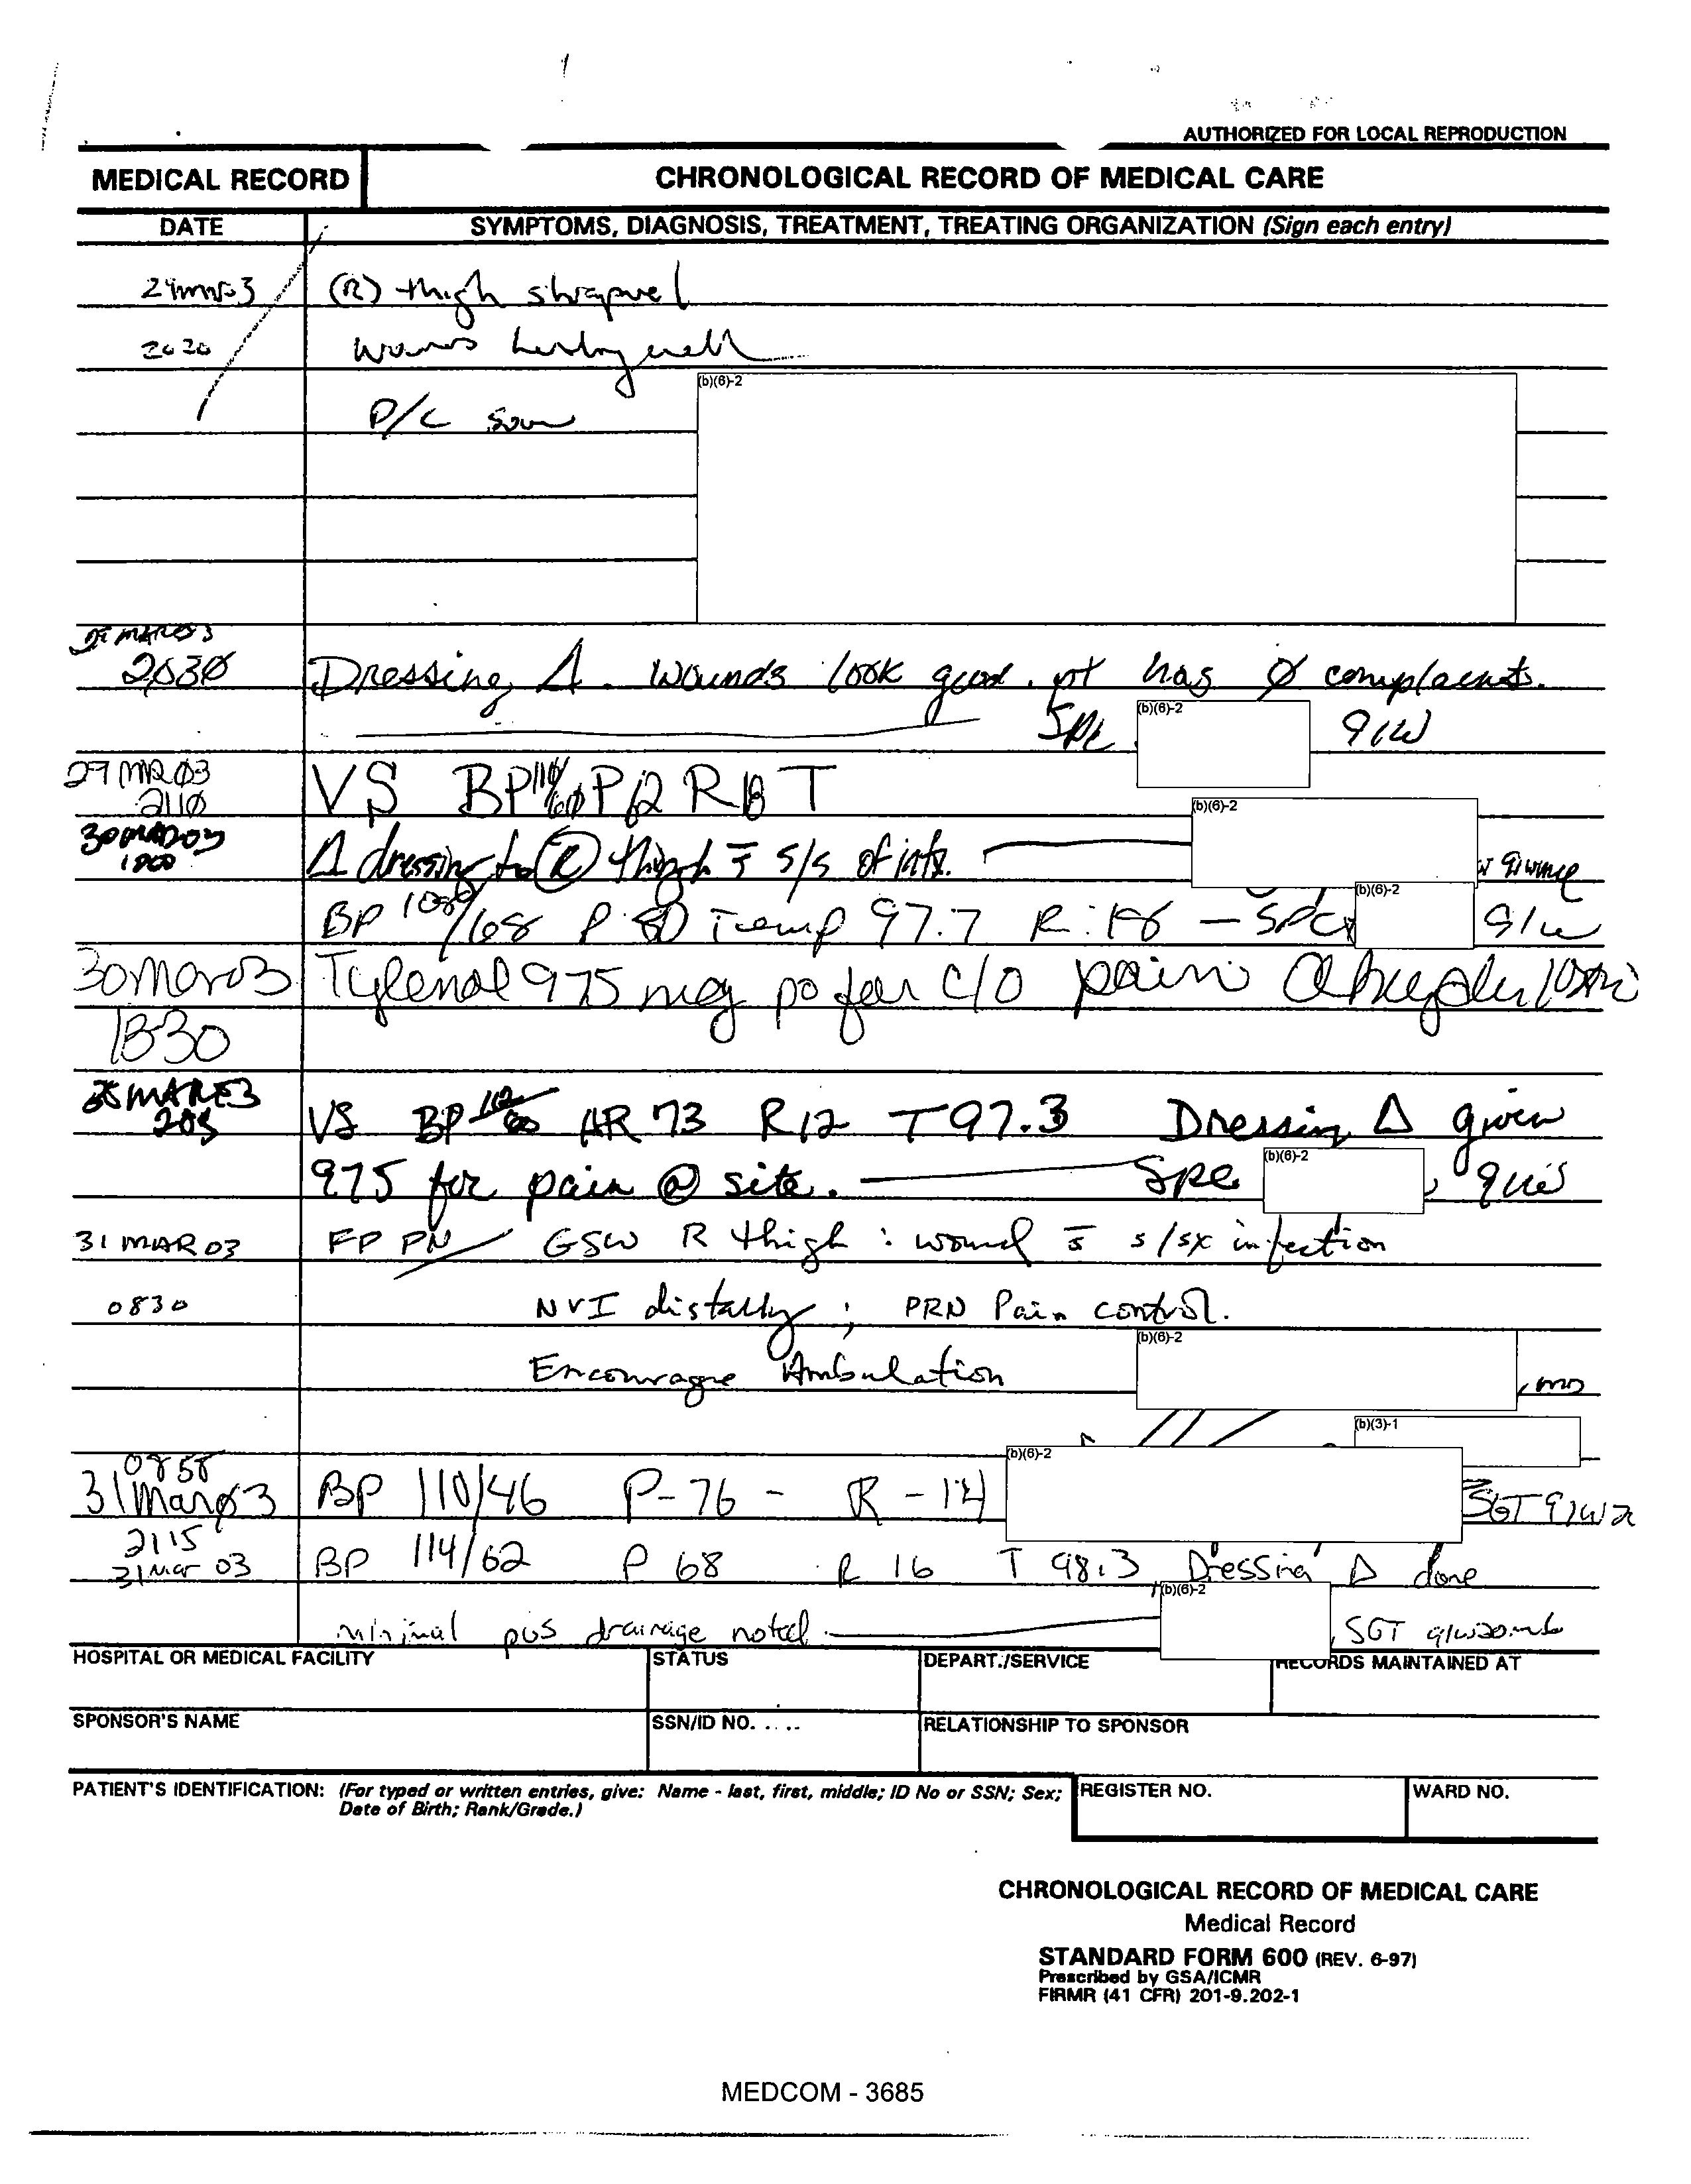 AUTHORIZED FOR LOCAL REPRODUCTION
MEDICAL RECORD
CHRONOLOGICAL RECORD OF MEDICAL CARE
DATE
SYMPTOMS, DIAGNOSIS, TREATMENT, TREATING ORGANIZATION (Sign each entry)
(R) thigh shrapnel
2020 well
(b)(6)-2
D/C soon
MAR03
2030 Dressing Δ. wounds look good. pt has Ø complaints.
Spc (b)(6)-2 91W
29 MAR 03
2110 VS BP 110/60 P R T
(b)(6)-2
30 MAR 03
1800 Δ dressing to (R) thigh s̄ s/s of infx.
BP 108/68 P 80 Temp 97.7 R: 16 — SPC (b)(6)-2 91W
30 Mar 03 Tylenol 975 mg po for c/o pain
1830
MAR 03
VS BP 112/60 HR 73 R 12 T 97.3 Dressing Δ given
975 for pain @ site. Spc (b)(6)-2
31 MAR 03 FP PN GSW R thigh : wound s̄ s/sx infection
0830 NVI distally ; PRN Pain control.
Encourage Ambulation (b)(6)-2 , MD
(b)(3)-1
0858
31 Mar 03 BP 110/46 P-76 - R-14 (b)(6)-2 SGT
2115
31 Mar 03 BP 114/62 P 68 R 16 T 98.3 Dressing Δ done
minimal pus drainage noted (b)(6)-2 , SGT
HOSPITAL OR MEDICAL FACILITY
STATUS
DEPART./SERVICE
RECORDS MAINTAINED AT
SPONSOR'S NAME
SSN/ID NO.
RELATIONSHIP TO SPONSOR
PATIENT'S IDENTIFICATION: (For typed or written entries, give: Name - last, first, middle; ID No or SSN; Sex;
Date of Birth; Rank/Grade.)
REGISTER NO.
WARD NO.
CHRONOLOGICAL RECORD OF MEDICAL CARE
Medical Record
STANDARD FORM 600 (REV. 6-97)
Prescribed by GSA/ICMR
FIRMR (41 CFR) 201-9.202-1
MEDCOM - 3685